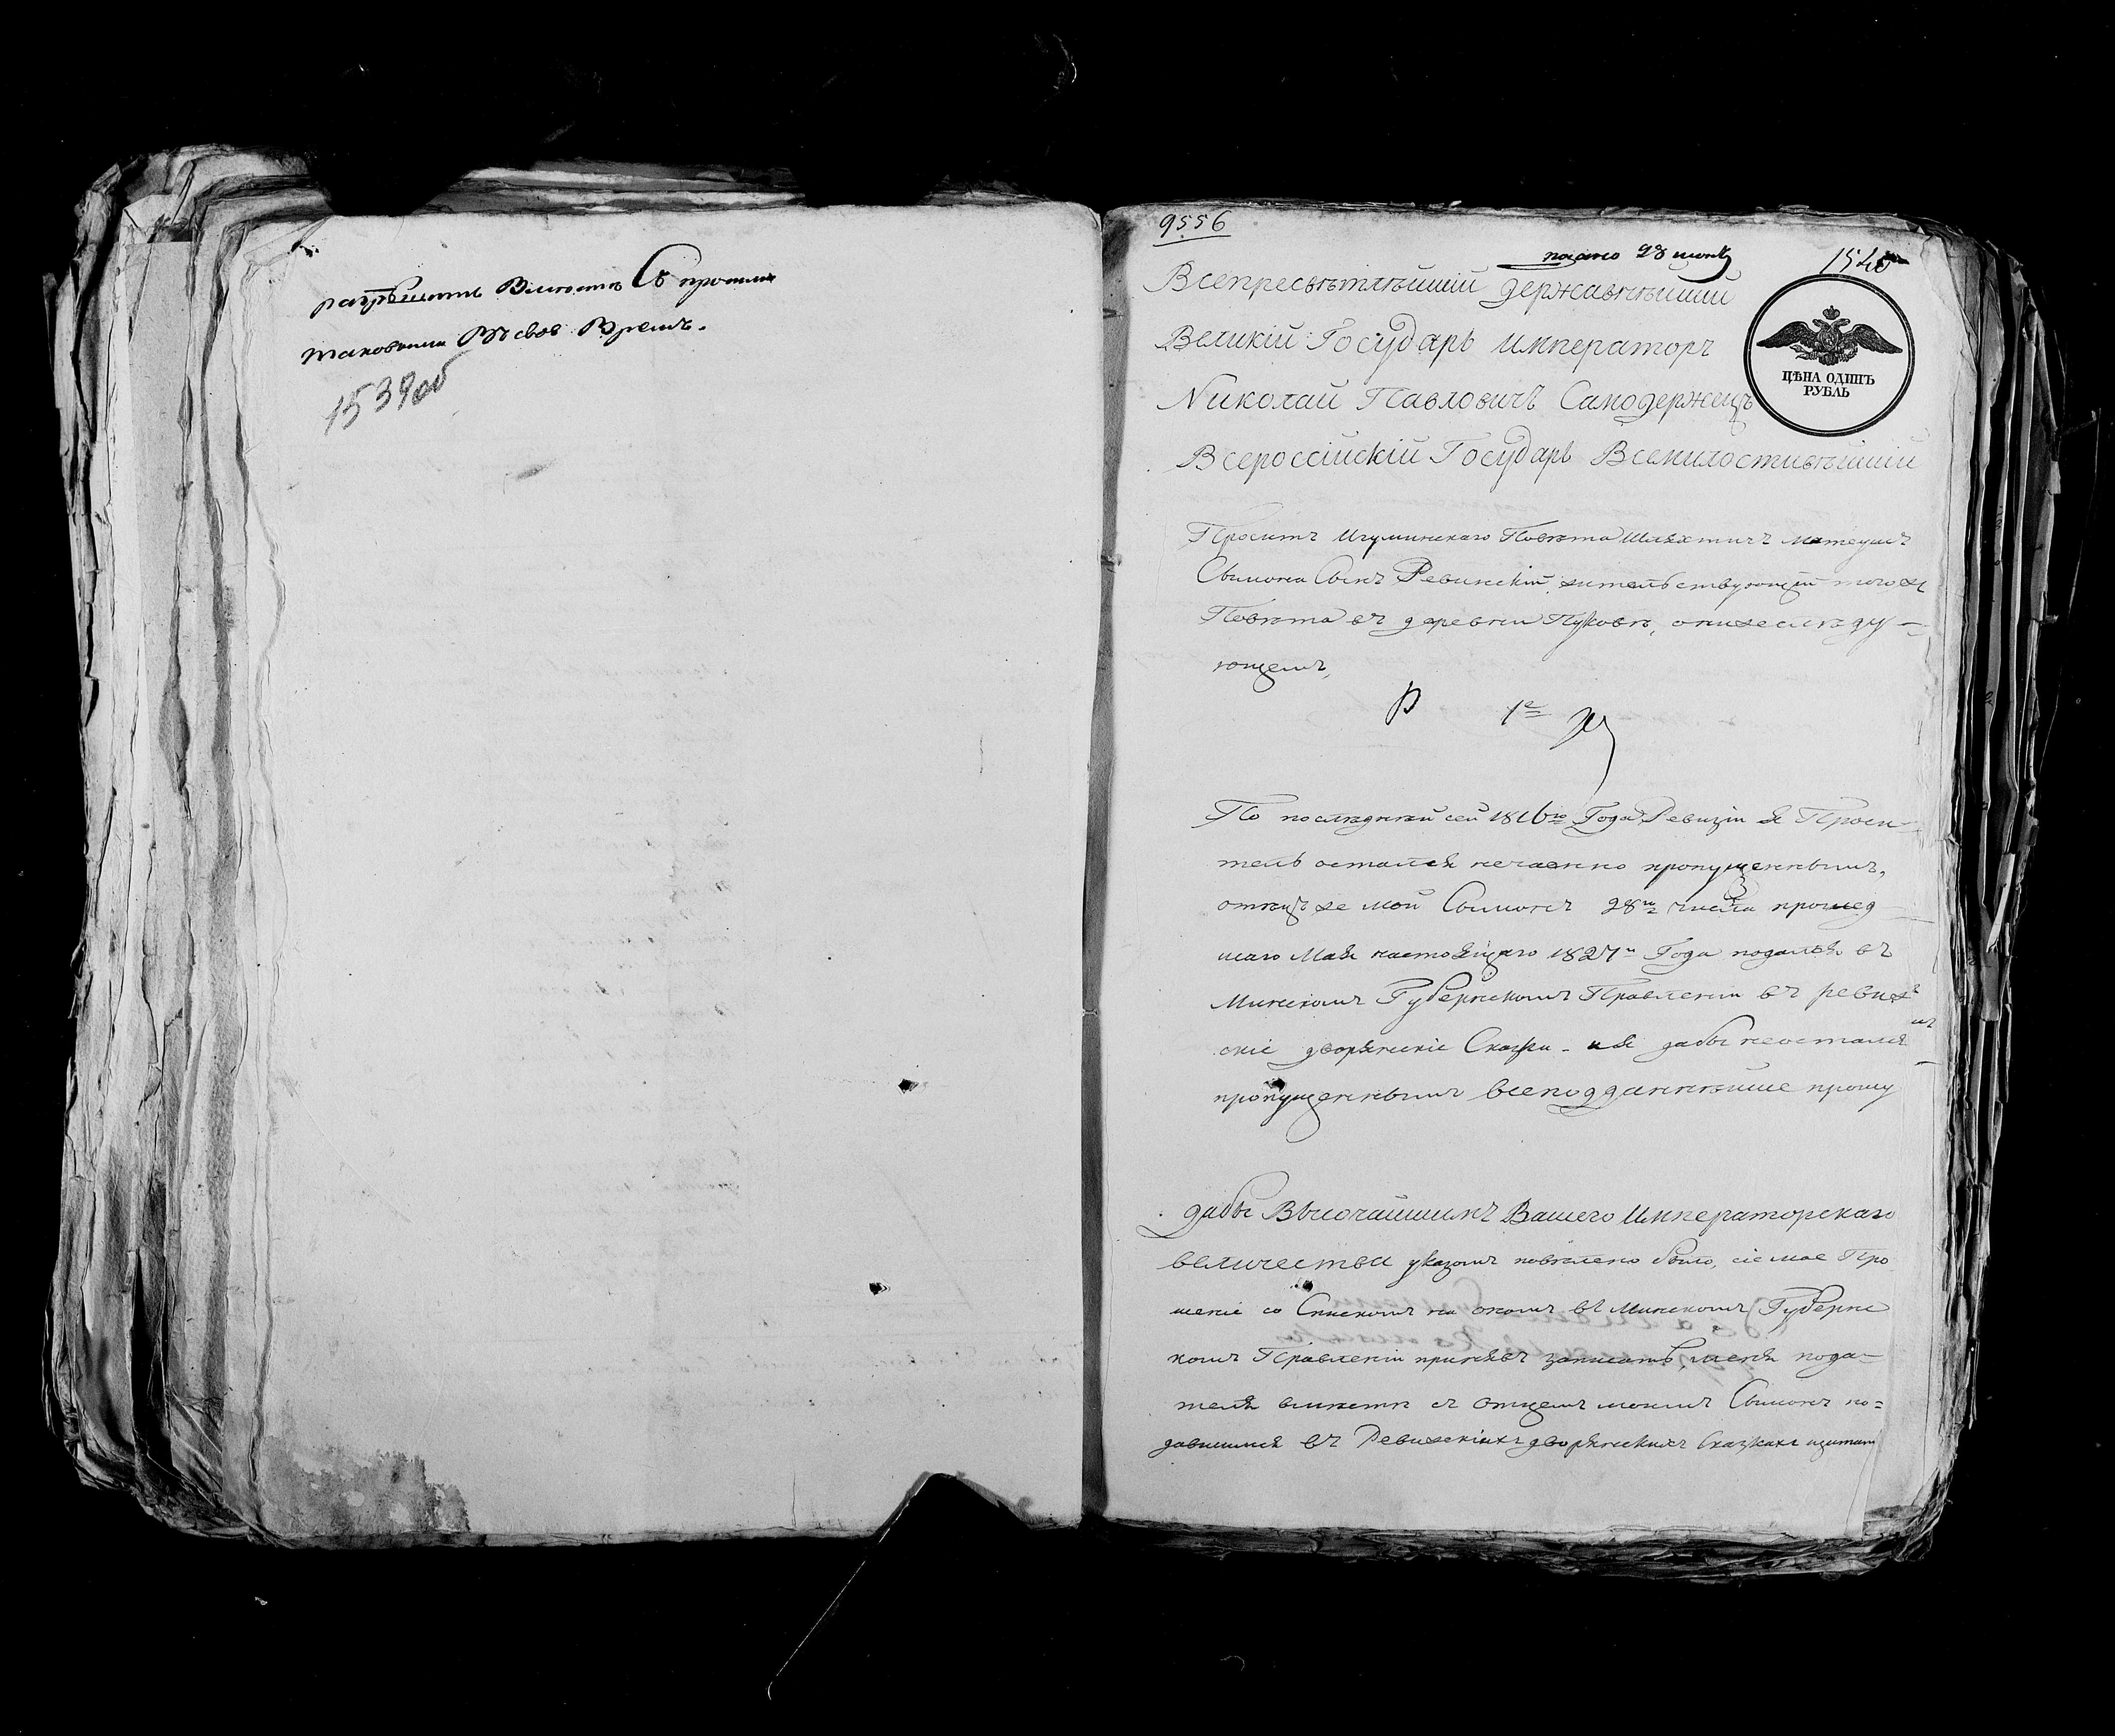 разрѣшить Вместѣ Съ прочими
таковыми Въ свое Время.
1539об
9556
подано 28 июня
1540
Всепресвѣтлѣйшій державнѣйшій
Великій Государь Императоръ
Николай Павловичъ Самодержецъ
Всероссійскій Государь Всемилостивѣйшій
ЦѢНА ОДИНЪ
РУБЛЬ
Проситъ Игуминскаго Повѣта Шляхтичъ Матеушъ
Сымона Сынъ Ревинскій, жительствующій того ж
Повѣта въ деревни Пуковѣ, о нижеслѣду-
ющемъ,
В 1е М
По послѣдней сей 1816го Года Ревизіи я Проси-
тель остался нечаенно пропущеннымъ,
отецъ же мой Сымонъ 28го числа прошед-
шаго Мая настоящаго 1827го Года подался въ
Минскомъ Губернскомъ Правленіи въ ревиж
скіе дворянскіе Сказки - и я дабы неостался
пропущеннымъ всеподданнѣйше прошу
дабы Высочайшимъ Вашего Императорскаго
величества указомъ повѣлено было, сіе мое Про
шеніе со Спискомъ на ономъ въ Минскомъ Губернс
комъ Правленіи принявъ записать, меня пода-
теля вмѣстѣ съ отцемъ моимъ Сымонъ по=
давшимся въ Ревижскіхъ дворянскихъ Сказкахъ